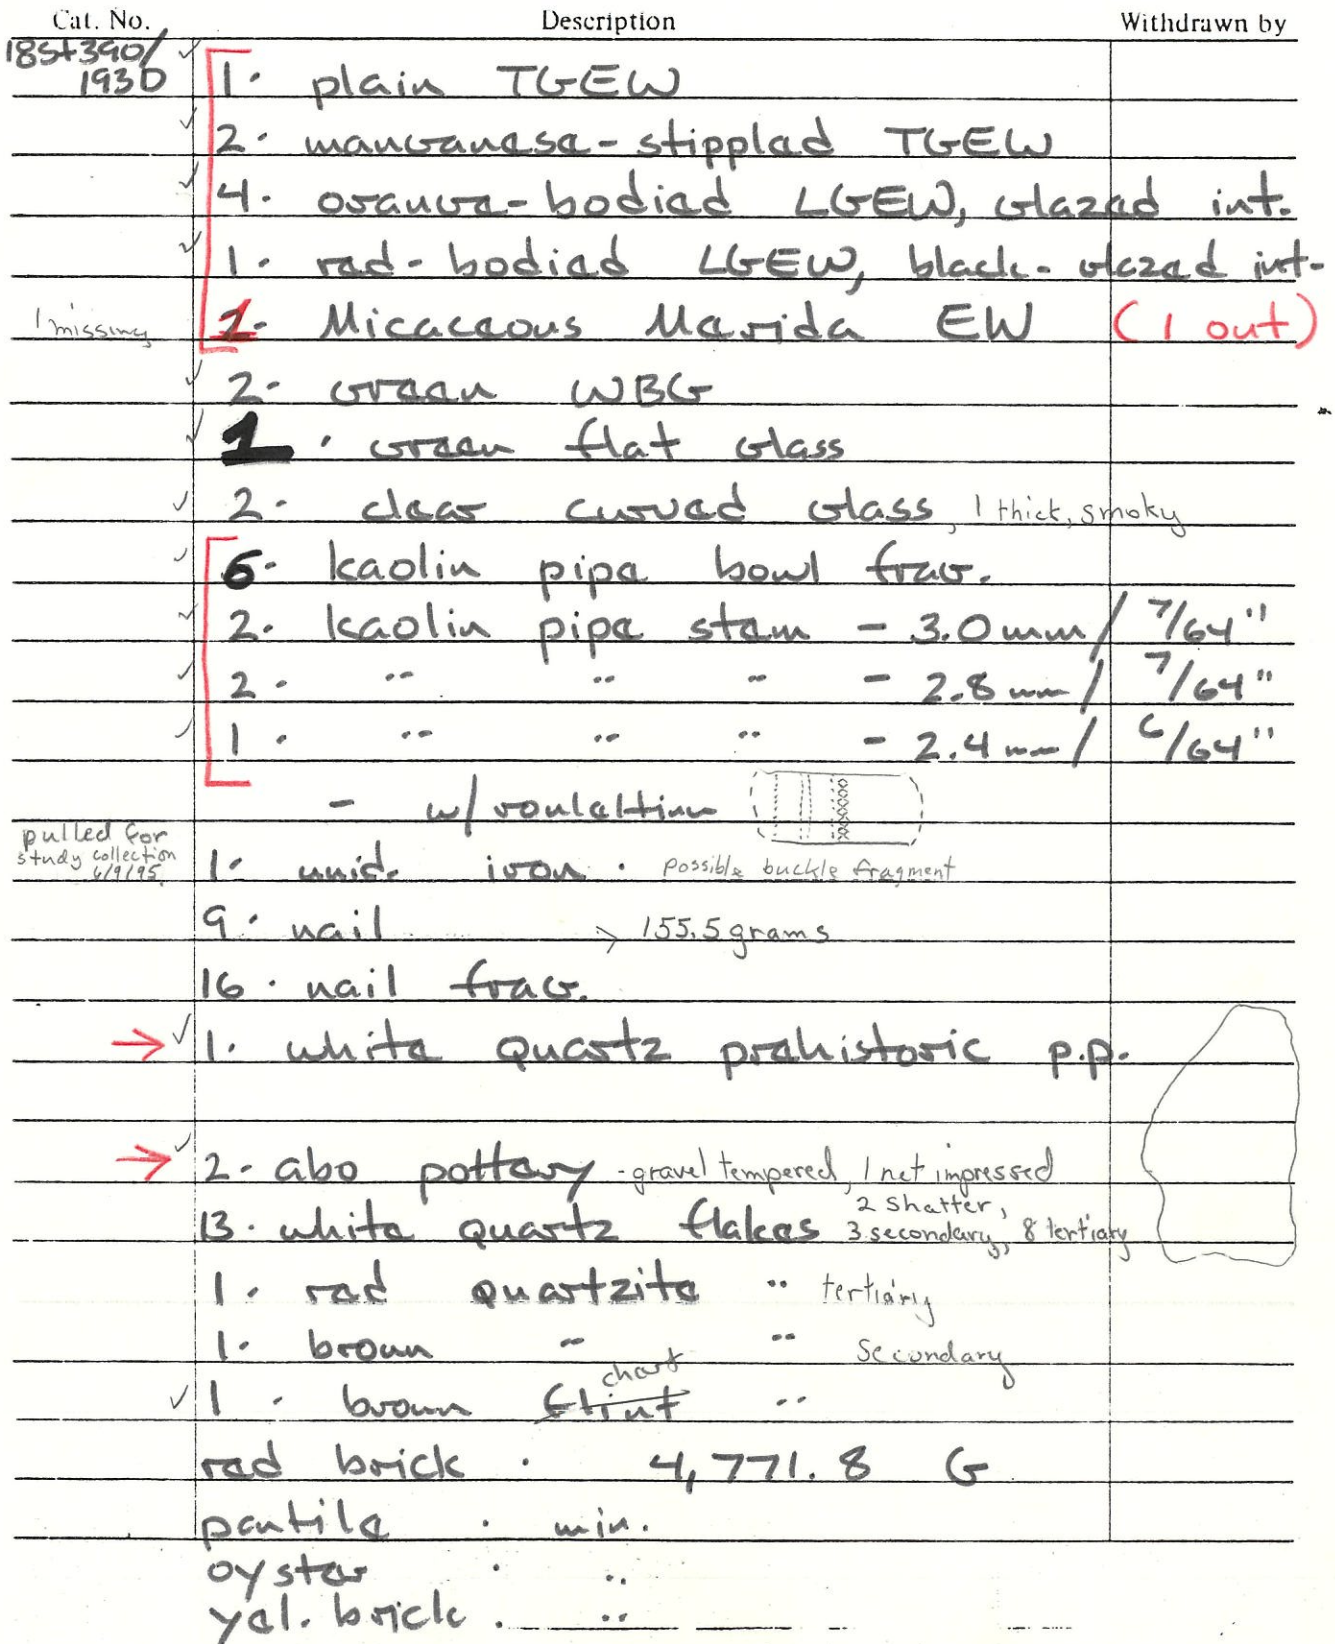 Cat. No. Description Withdrawn by
18St390/
193D
1 · plain TGEW
2 · manganese-stippled TGEW
4 · orange-bodied LGEW, glazed int.
1 · red-bodied LGEW, black-glazed int.
1 missing 1 · Micaceous Merida EW (1 out)
2 · green WBG
1 · green flat glass
2 · clear curved glass, 1 thick, smoky
6 · kaolin pipe bowl frag.
2 · kaolin pipe stem - 3.0 mm / 7/64"
2 · " " " - 2.8 mm / 7/64"
1 · " " " - 2.4 mm / 6/64"
- w/ rouletting
pulled for
study collection
6/9/95
1 · unid. iron · possible buckle fragment
9 · nail > 155.5 grams
16 · nail frag.
→ 1 · white quartz prehistoric p.p.
→ 2 · abo pottery - gravel tempered, 1 net impressed
13 · white quartz flakes 2 shatter,
3 secondary, 8 tertiary
1 · red quartzite " tertiary
1 · brown " " secondary
chert
1 · brown flint "
red brick · 4,771.8 G
pantile · min.
oyster · "
yel. brick · "